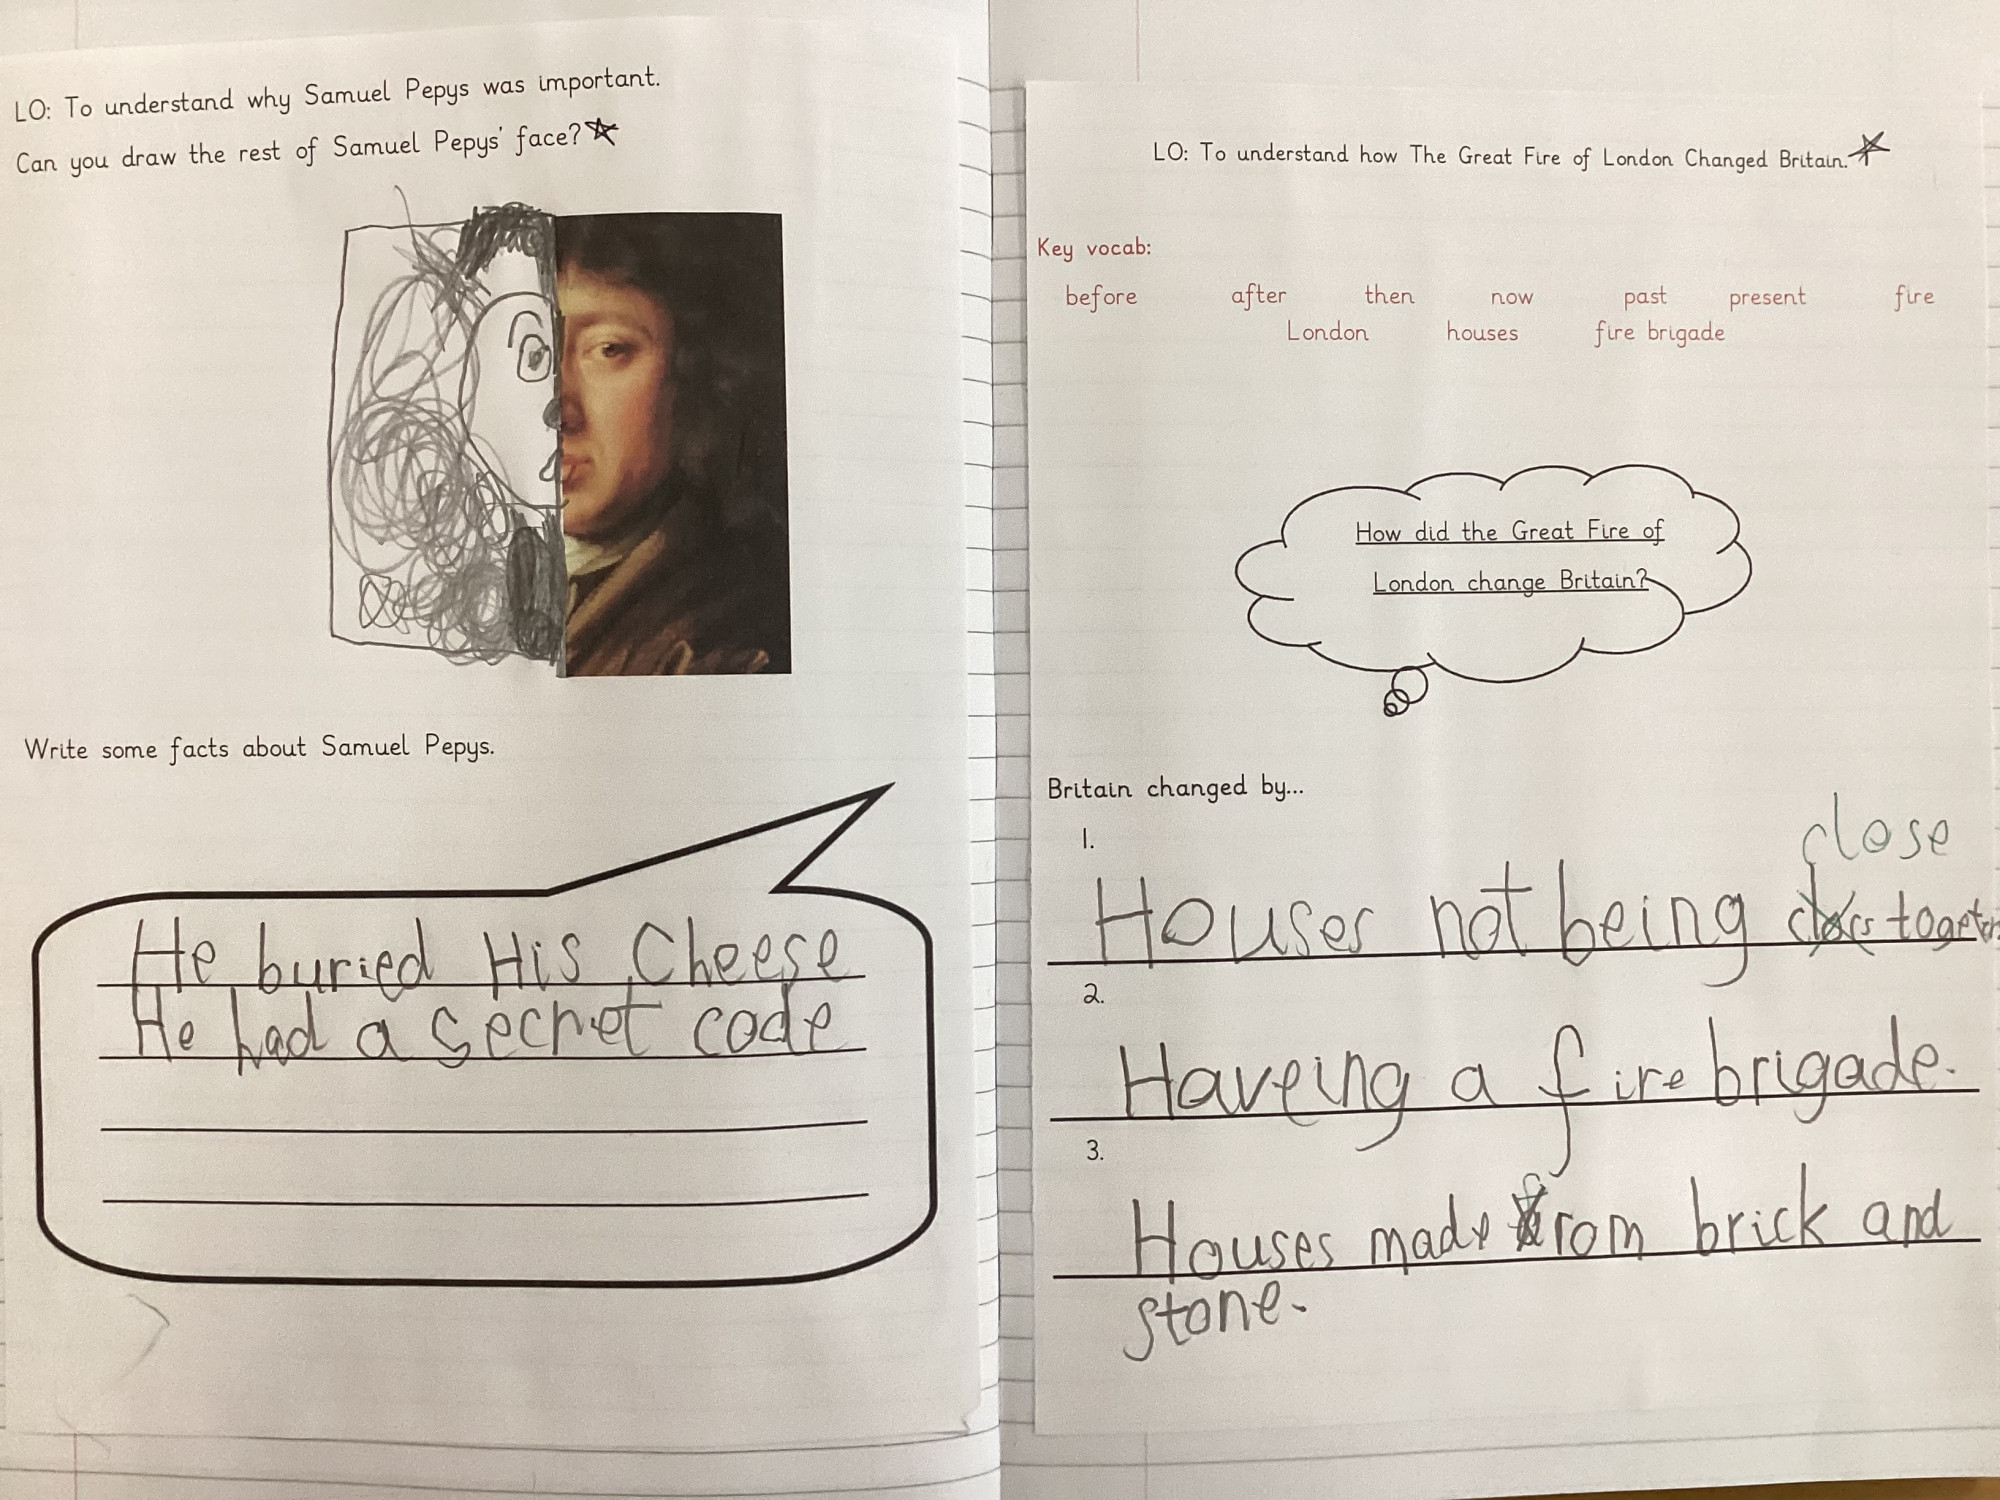 LO: To understand why Samuel Pepys was important.
Can you draw the rest of Samuel Pepys' face?
Write some facts about Samuel Pepys.
He buried His Cheese
He had a secret code
LO: To understand how The Great Fire of London Changed Britain.
Key vocab:
before after then now past present fire
London houses fire brigade
How did the Great Fire of
London change Britain?
Britain changed by...
1.
close
Houses not being together
2.
Haveing a fire brigade.
3.
Houses made from brick and
stone.